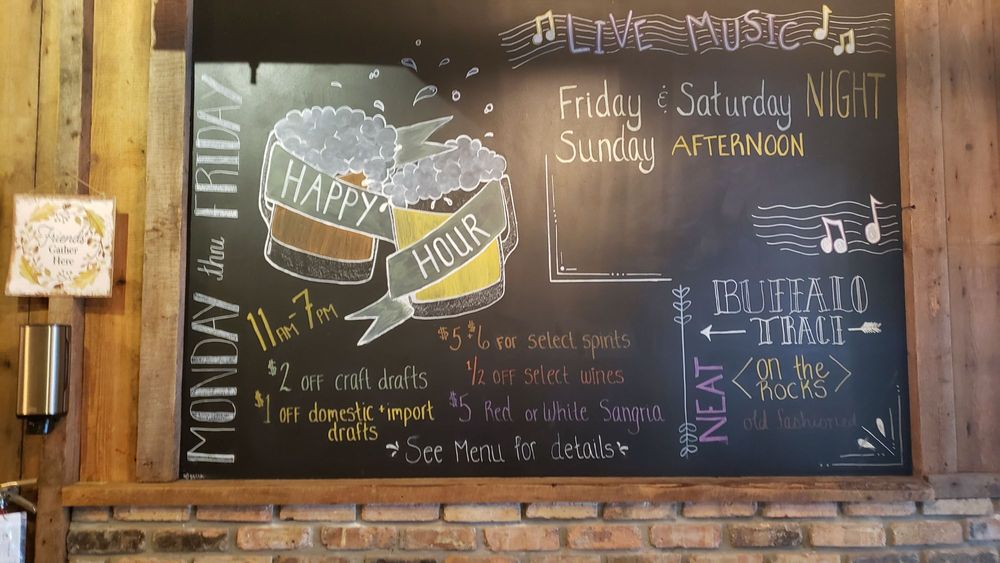 LIVE MUSIC
Friday & Saturday NIGHT
Sunday AFTERNOON
MONDAY thru FRIDAY
HAPPY
HOUR
11AM-7PM
$2 OFF craft drafts
$1 OFF domestic + import
drafts
$5 $6 FOR select spirits
1/2 OFF select wines
$5 Red or White Sangria
See Menu for details
BUFFALO
TRACE
NEAT
on the
ROCKS
old fashioned
Friends
Gather
Here